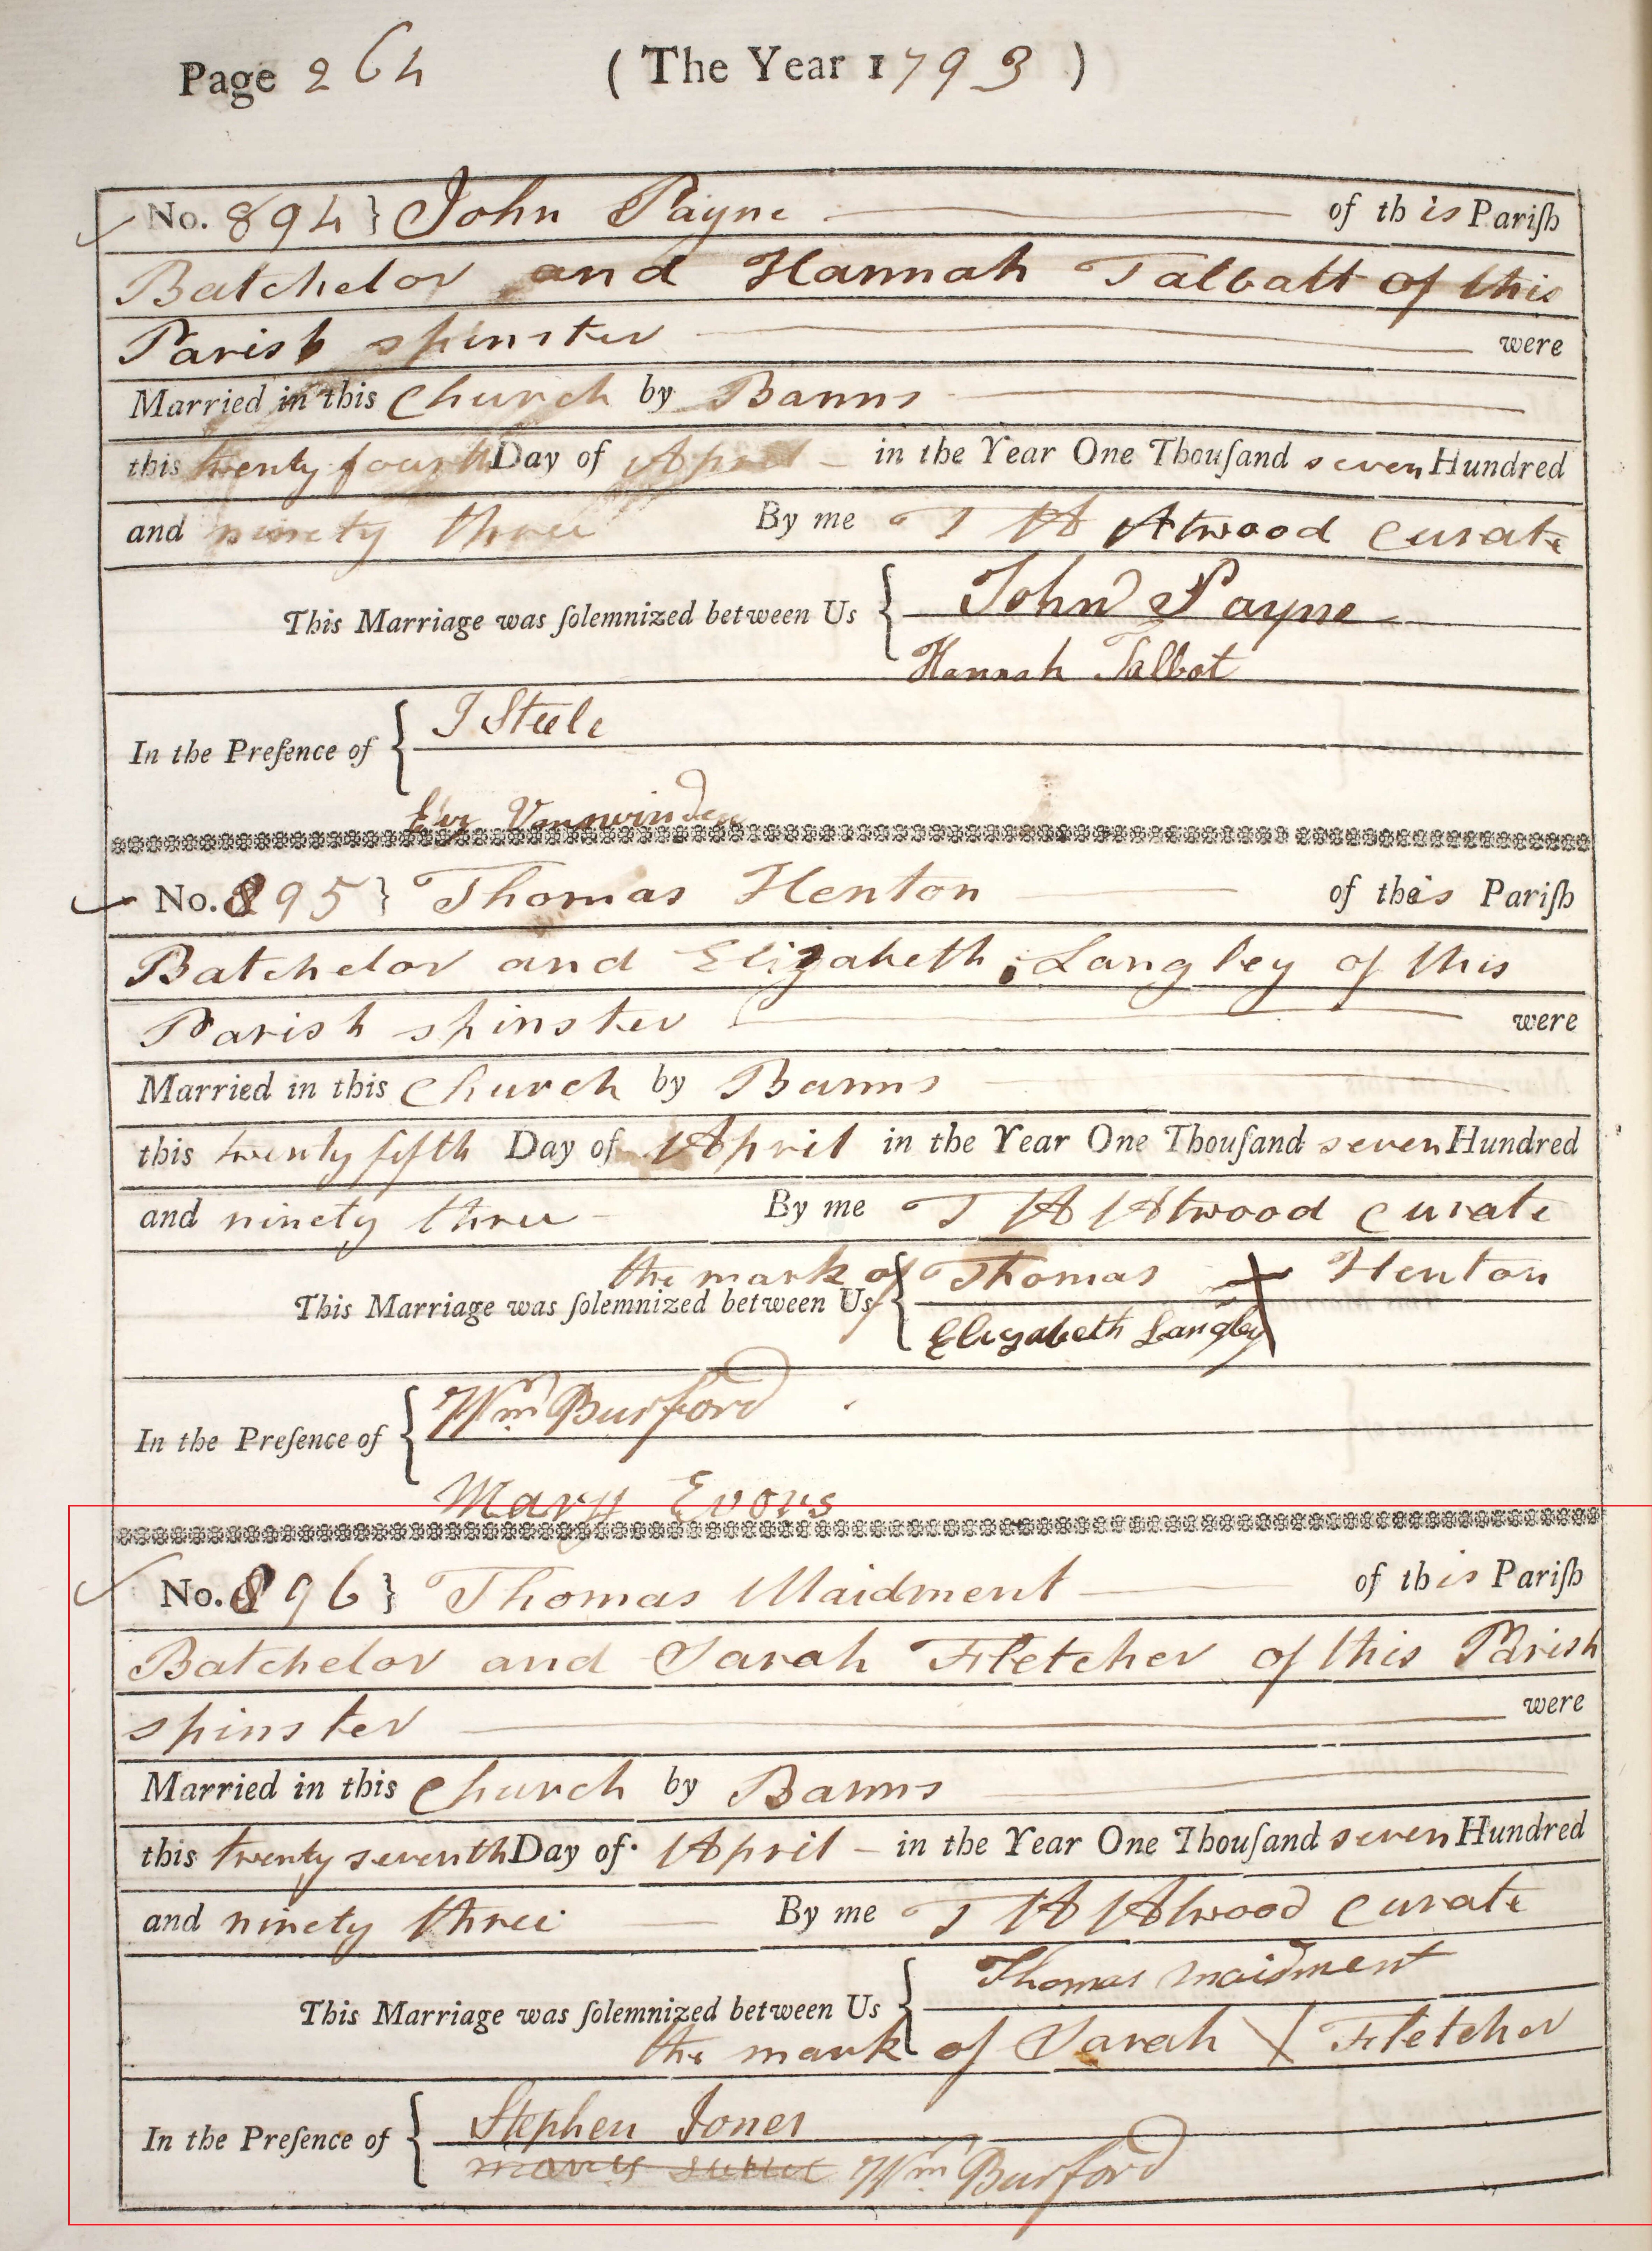 Page 264 (The Year 1793)
No. 894} John Payne of this Pariſh
Batchelor and Hannah Talbatt of this
Parish spinster were
Married in this Church by Banns
this twenty fourth Day of April in the Year One Thouſand seven Hundred
and ninety three By me T H Atwood Curate
This Marriage was ſolemnized between Us { John Payne
Hannah Talbot
In the Preſence of { J Steele
Vanswinden
No. 895} Thomas Henton of this Pariſh
Batchelor and Elizabeth Langley of this
Parish spinster were
Married in this Church by Banns
this twenty fifth Day of April in the Year One Thouſand seven Hundred
and ninety three By me T H Atwood Curate
the mark of Thomas X Henton
This Marriage was ſolemnized between Us {
Elizabeth Langley
In the Preſence of { Wm Burford
Mary Evors
No. 896} Thomas Maidment of this Pariſh
Batchelor and Sarah Fletcher of this Parish
spinster were
Married in this Church by Banns
this twenty seventh Day of April in the Year One Thouſand seven Hundred
and ninety three By me T H Atwood Curate
This Marriage was ſolemnized between Us { Thomas Maidment
the mark of Sarah X Fletcher
In the Preſence of { Stephen Jones
Wm Burford